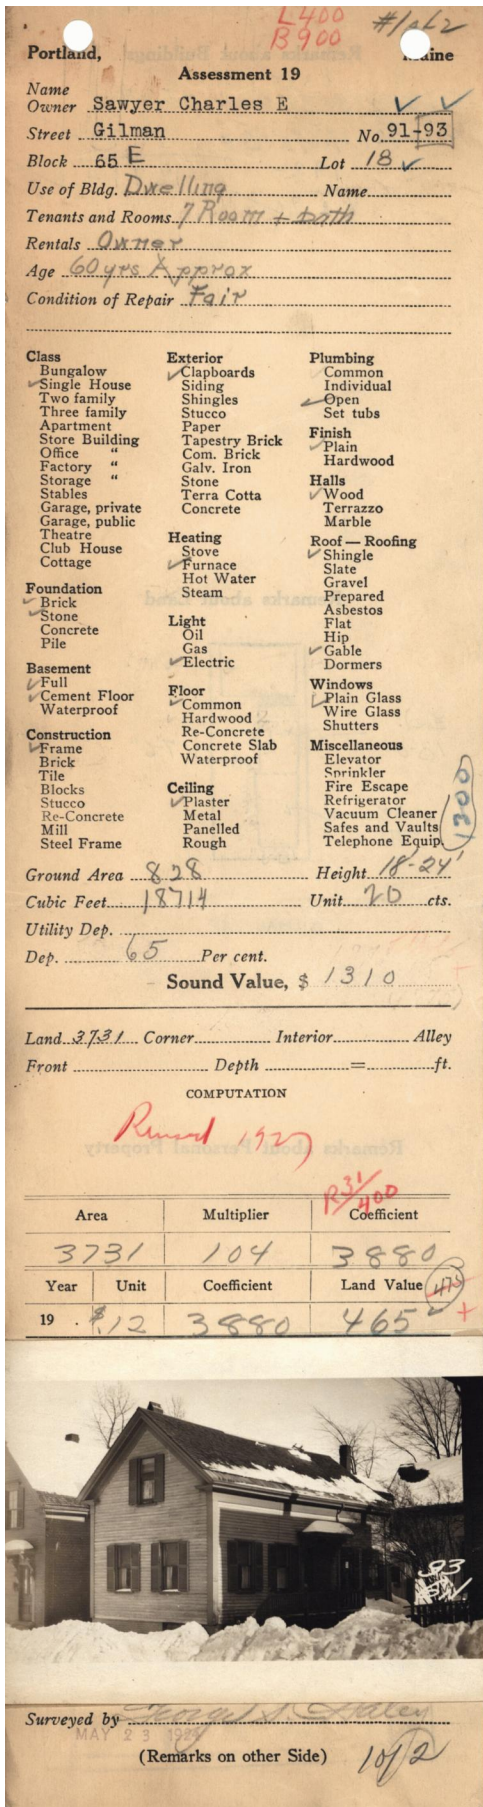 L400
B900
#1 of 2
Portland, Maine
Assessment 19
Name
Owner Sawyer Charles E
Street Gilman No. 91-93
Block 65 E Lot 18
Use of Bldg. Dwelling Name
Tenants and Rooms 7 Room + bath
Rentals Owner
Age 60 yrs Approx
Condition of Repair Fair
Class
Bungalow
Single House
Two family
Three family
Apartment
Store Building
Office "
Factory "
Storage "
Stables
Garage, private
Garage, public
Theatre
Club House
Cottage
Foundation
Brick
Stone
Concrete
Pile
Basement
Full
Cement Floor
Waterproof
Construction
Frame
Brick
Tile
Blocks
Stucco
Re-Concrete
Mill
Steel Frame
Exterior
Clapboards
Siding
Shingles
Stucco
Paper
Tapestry Brick
Com. Brick
Galv. Iron
Stone
Terra Cotta
Concrete
Heating
Stove
Furnace
Hot Water
Steam
Light
Oil
Gas
Electric
Floor
Common
Hardwood
Re-Concrete
Concrete Slab
Waterproof
Ceiling
Plaster
Metal
Panelled
Rough
Plumbing
Common
Individual
Open
Set tubs
Finish
Plain
Hardwood
Halls
Wood
Terrazzo
Marble
Roof — Roofing
Shingle
Slate
Gravel
Prepared
Asbestos
Flat
Hip
Gable
Dormers
Windows
Plain Glass
Wire Glass
Shutters
Miscellaneous
Elevator
Sprinkler
Fire Escape
Refrigerator
Vacuum Cleaner
Safes and Vaults
Telephone Equip.
1300
Ground Area 828 Height 18-24'
Cubic Feet 18714 Unit 20 cts.
Utility Dep.
Dep. 65 Per cent.
Sound Value, $ 1310
Land 3731 Corner Interior Alley
Front Depth = ft.
COMPUTATION
1927
R31/400
Area Multiplier Coefficient
3731 104 3880
Year Unit Coefficient Land Value 475
19 . $.12 3880 465
93
Surveyed by
MAY 23 192
(Remarks on other Side) 1 of 2